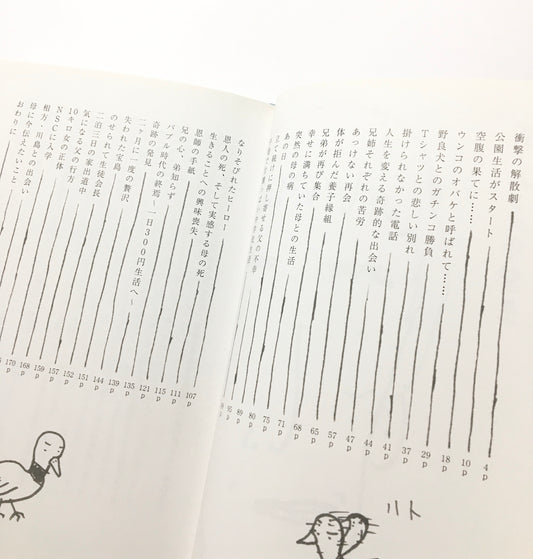 衝撃の解散劇 4p
公園生活がスタート 10p
空腹の果てに…… 18p
ウンコのオバケと呼ばれて…… 29p
野良犬とのガチンコ勝負 37p
Tシャツとの悲しい別れ 41p
掛けられなかった電話 44p
人生を変える奇跡的な出会い 47p
兄姉それぞれの苦労 54p
あっけない再会 57p
体が拒んだ養子縁組 65p
兄弟が再び集合 68p
幸せに満ちていた母との生活 71p
突然の母の病 75p
あの日 80p
立て続けに押し寄せる父の不幸 89p
95p
なりそびれたヒーロー 107p
恩人の死、そして実感する母の死 111p
生きることへの興味喪失 115p
恩師の手紙 121p
兄の心、弟知らず 135p
バブル時代の終焉〜一日300円生活へ〜 139p
奇跡の発見 144p
二ヶ月に一度の贅沢 151p
失われた宝島 152p
のせられて生徒会長 157p
二泊三日の家出道中 159p
気になる父の行方 168p
10キロ女の正体 170p
NSCに入学
相方・川島との出会い
母に今伝えたいこと
おわりに
ハト